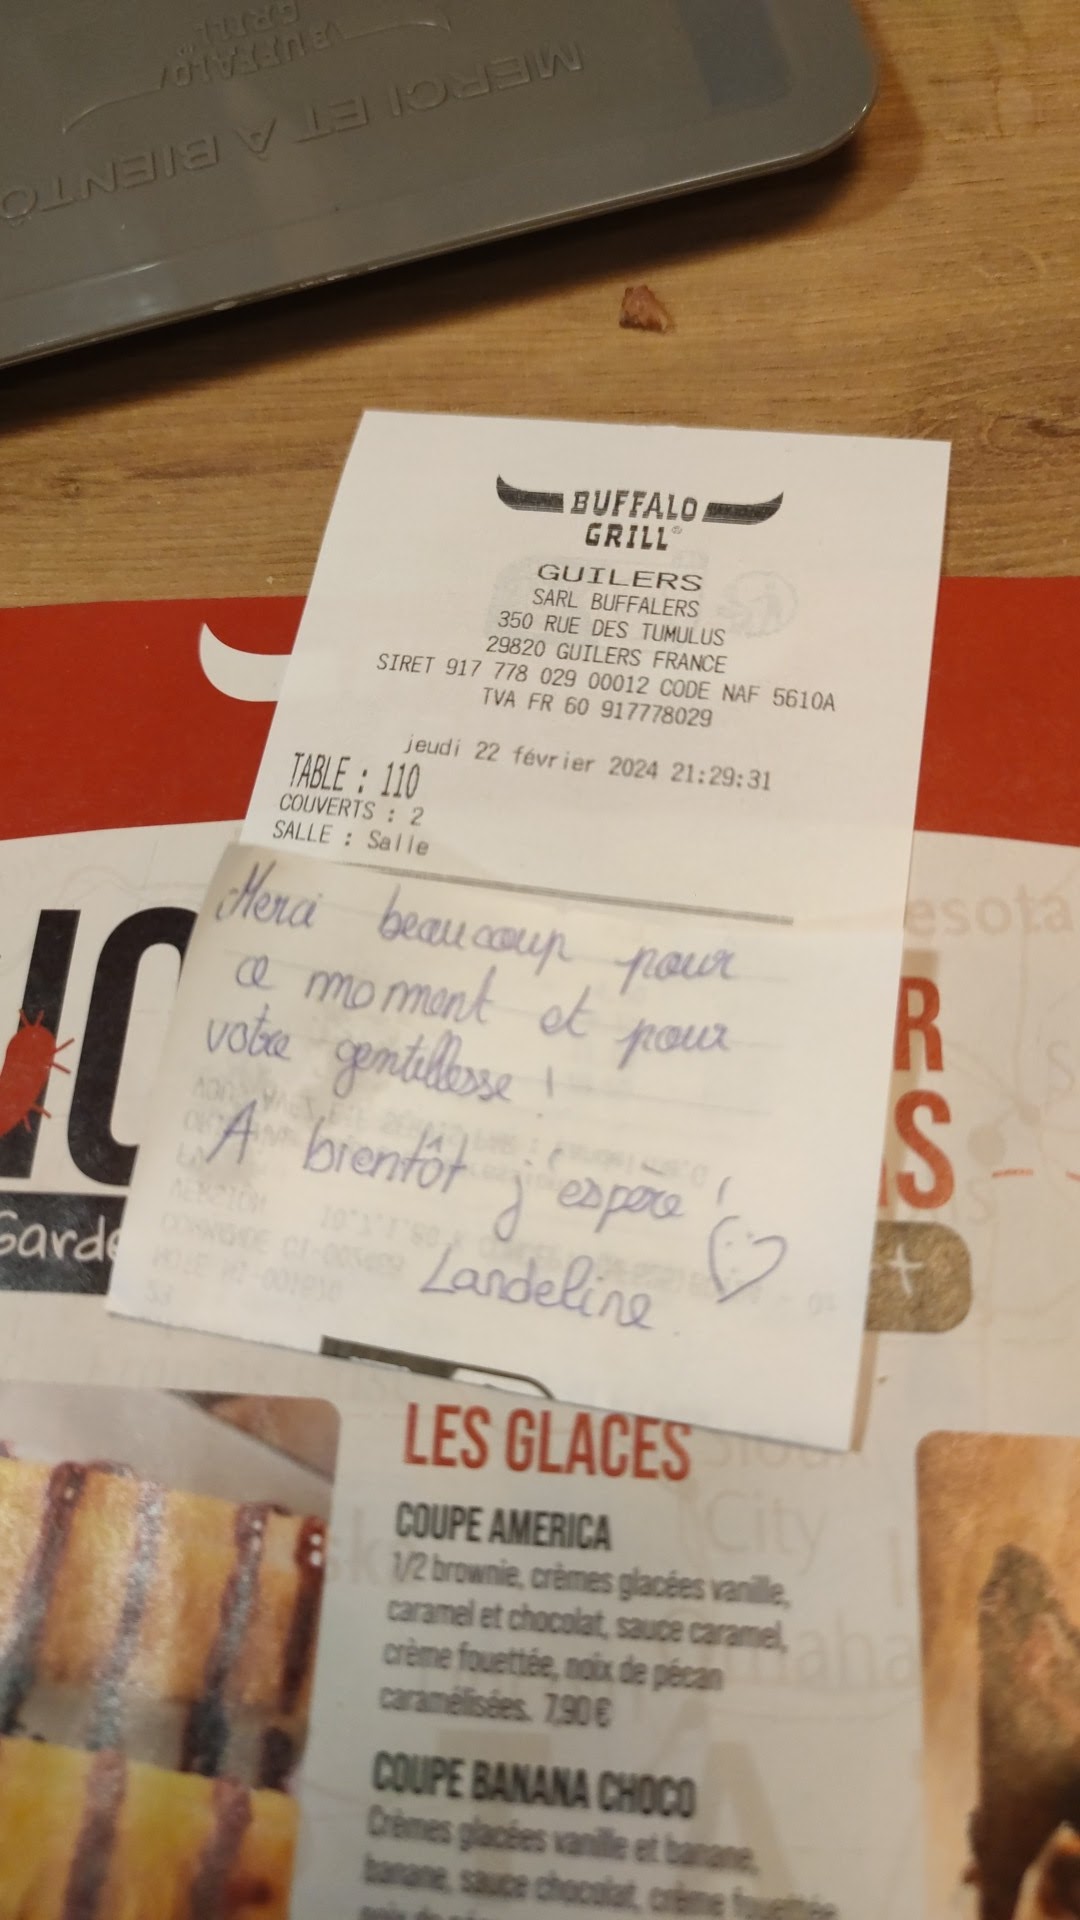 MERCI ET À BIENTÔ
BUFFALO
GRILL
BUFFALO
GRILL®
GUILERS
SARL BUFFALERS
350 RUE DES TUMULUS
29820 GUILERS FRANCE
SIRET 917 778 029 00012 CODE NAF 5610A
TVA FR 60 917778029
jeudi 22 février 2024 21:29:31
TABLE : 110
COUVERTS : 2
SALLE : Salle
Merci beaucoup pour
ce moment et pour
votre gentillesse !
A bientôt j'espère !
Landeline
esota
R
AS
Garde
+
LES GLACES
Sioux
City
maha
COUPE AMERICA
1/2 brownie, crèmes glacées vanille,
caramel et chocolat, sauce caramel,
crème fouettée, noix de pécan
caramélisées. 7,90€
COUPE BANANA CHOCO
Crèmes glacées vanille et banane,
banane, sauce chocolat, crème fouettée